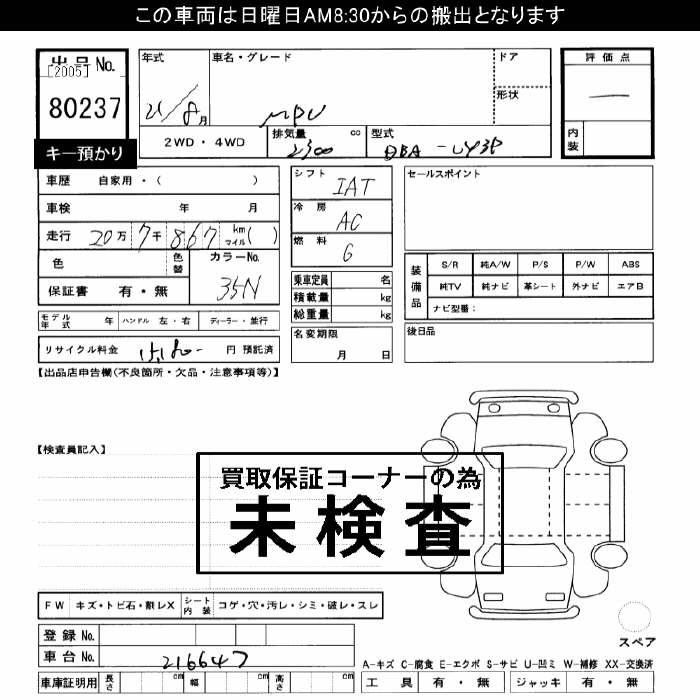 この車両は日曜日AM8:30からの搬出となります
出品No.
[2005]
80237
キー預かり
年式 車名・グレード ドア
21/8月 MPV 形状
2WD・4WD 排気量 cc 2300 型式 DBA-LY3P
評価点
内装
車歴 自家用・( )
車検 年 月
走行 20万7千867 km マイル( )
色 色替 カラーNo.
保証書 有・無 35N
モデル年式 年 ハンドル 左・右 ディーラー・並行
リサイクル料金 15,180- 円 預託済
シフト IAT
冷房 AC
燃料 G
乗車定員 名
積載量 kg
総重量 kg
名変期限
月 日
セールスポイント
装備品 S/R 純A/W P/S P/W ABS
純TV 純ナビ 革シート 外ナビ エアB
ナビ型番:
後日品
【出品店申告欄(不良箇所・欠品・注意事項等)】
【検査員記入】
買取保証コーナーの為
未検査
FW キズ・トビ石・割レX シート内装 コゲ・穴・汚レ・シミ・破レ・スレ
登録No.
車台No. 216647
車庫証明用 長さ cm 幅 cm 高さ cm
スペア
A-キズ C-腐食 E-エクボ S-サビ U-凹ミ W-補修 XX-交換済
工具 有・無 ジャッキ 有・無